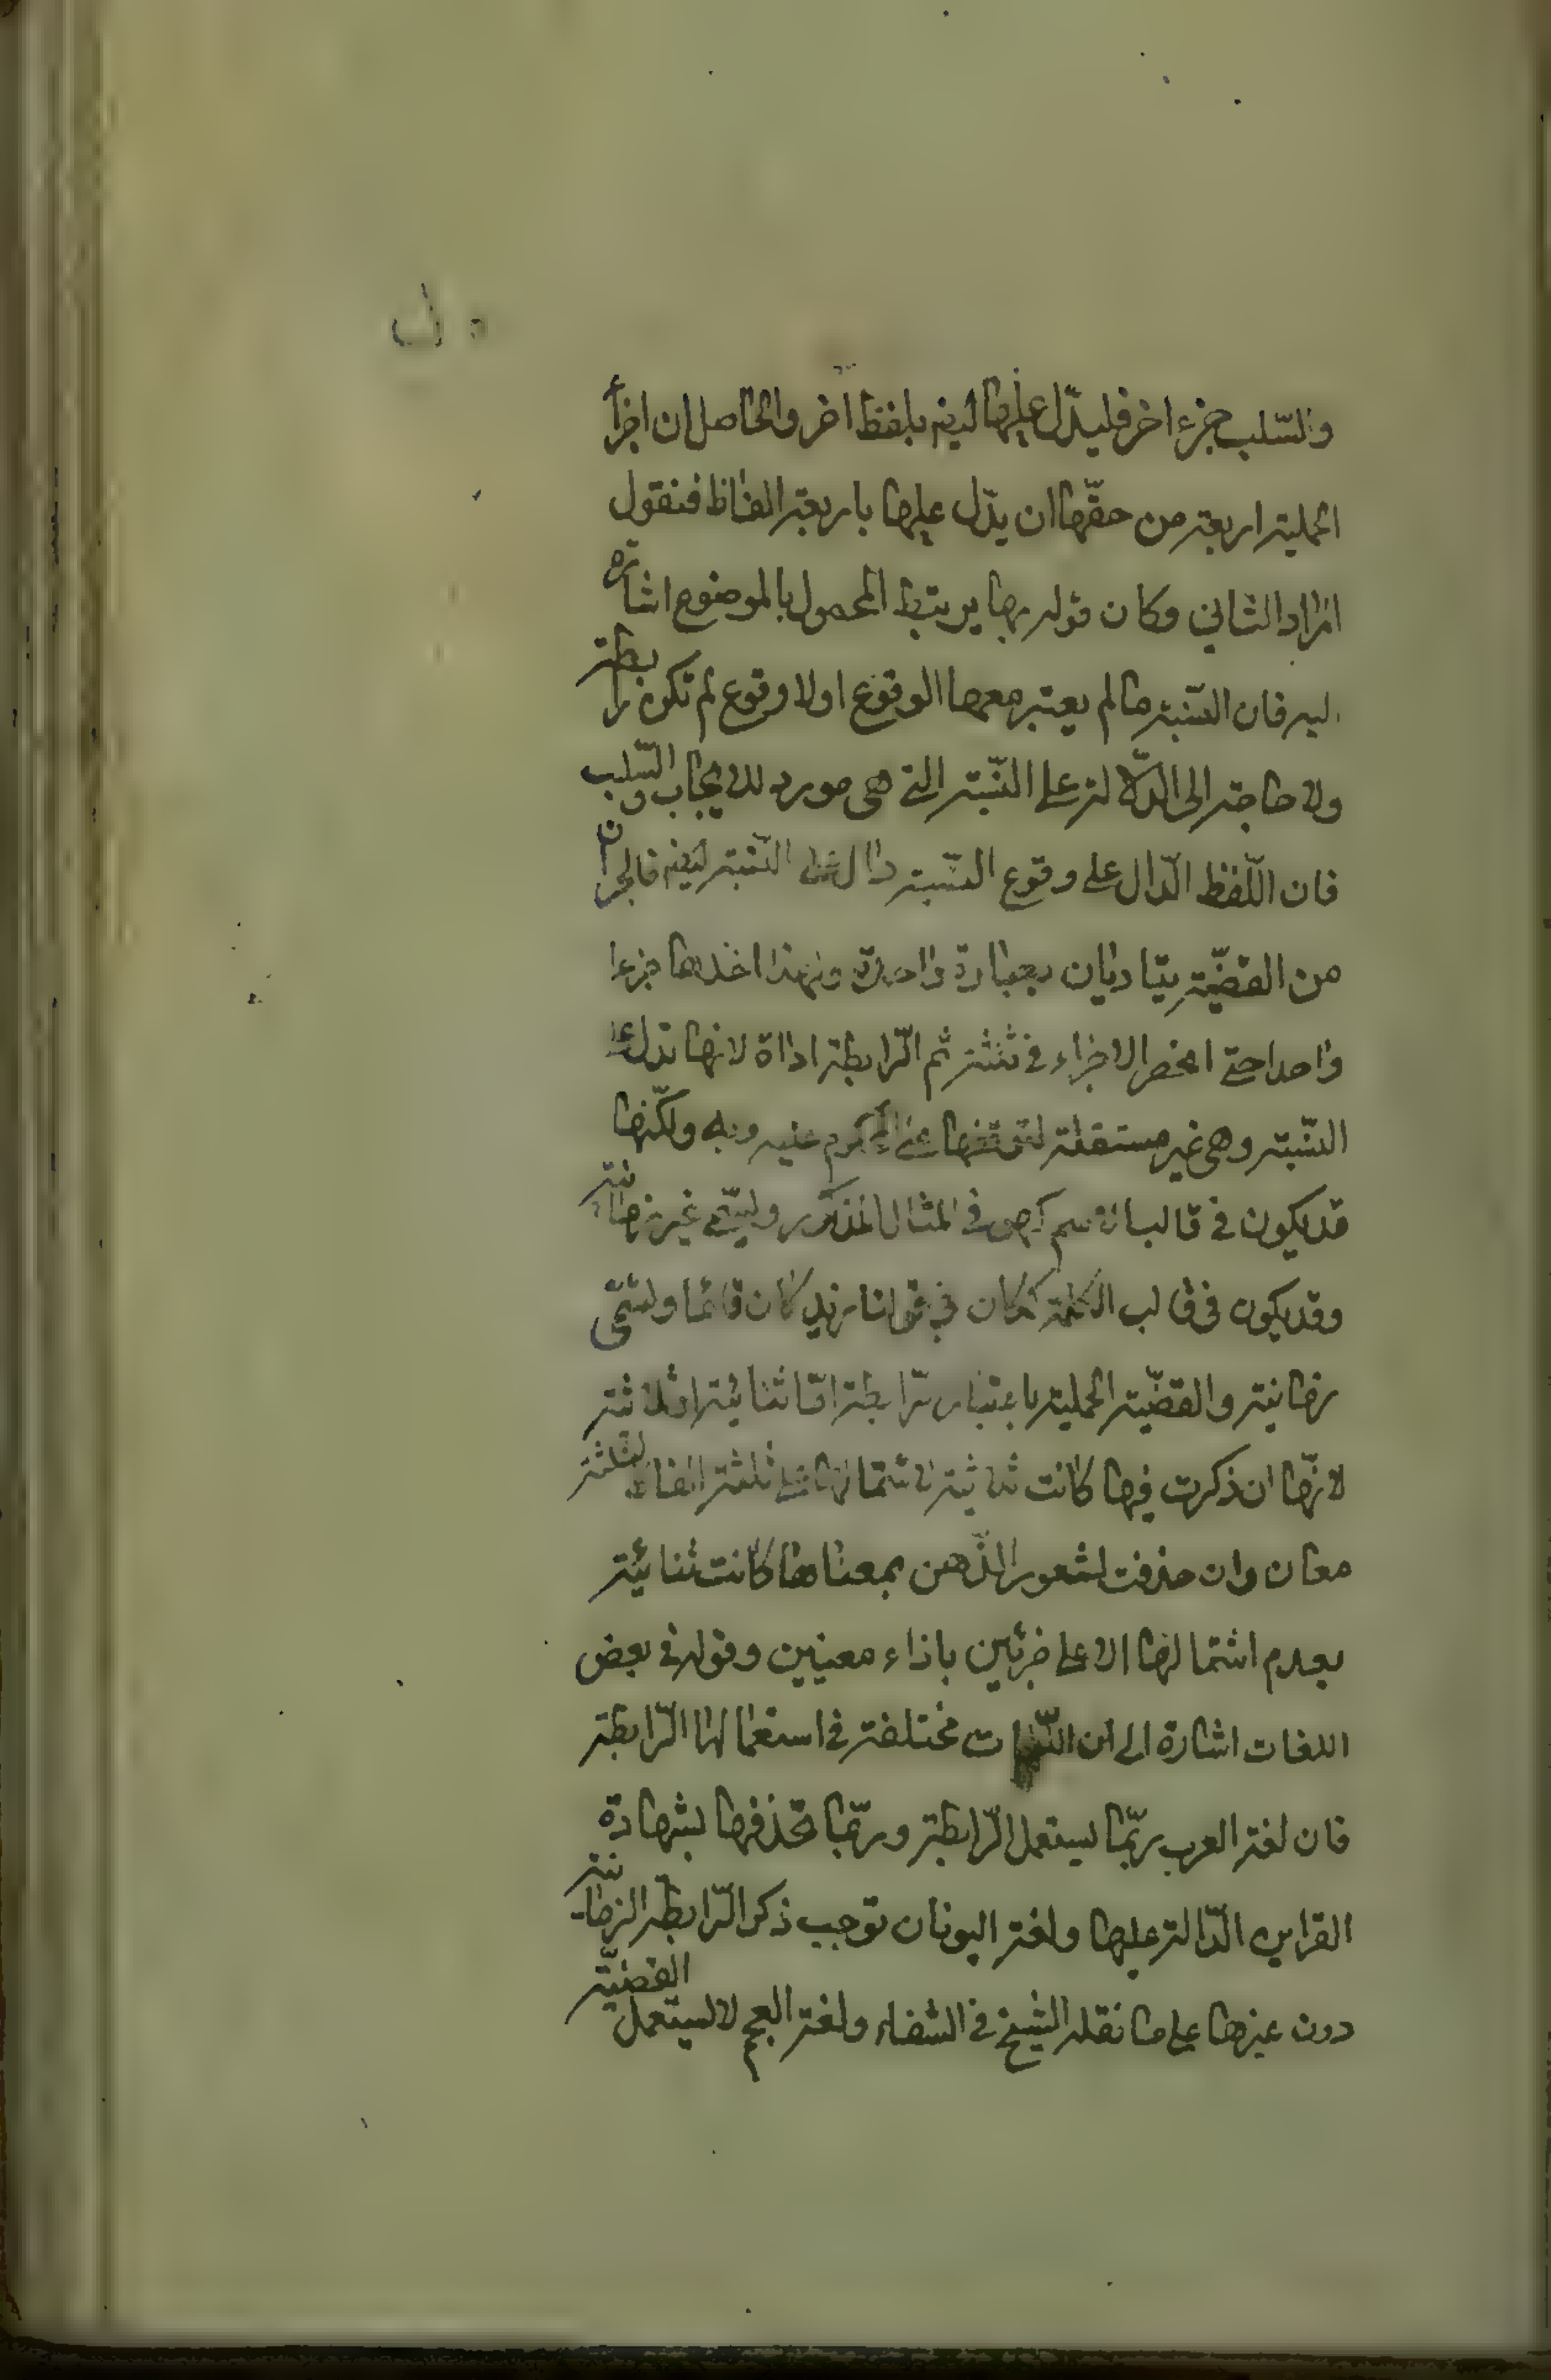 والسّلب جزء اخر فليدّل عليها ايضا بلفظ اخر والحاصل ان اجزأ
الحملية اربعة من حقّها ان يدّل عليها باربعة الفاظ فنقول
المراد الثاني وكان قوله بها يرتبط المحمول بالموضوع اشارة
اليه فان النّسبة ما لم يعتبر معها الوقوع اولا وقوع لم تكون رابطة
ولا حاجة الى الدّلالة على النّسبة التي هي مورد للايجاب والسّلب
فان اللّفظ الدّال على وقوع النّسبة دال على النّسبة ايضا فالجزان
من القضيّة يتاديان بعبارة واحدة ولهذا اخذها جزءا
واحدا حتى انحصر الاجزاء في ثلثة ثم الرّابطة اداة لانها تدل على
النّسبة وهي غير مستقلة لتوقفها على المحكوم عليه وبه ولكنّها
قد يكون في قالب الاسم كهو في المثال المذكور وليسمّى غير زمانية
وقد يكون في قالب الكلمة ككان في قولنا زيد كان قائما وليسمّى
زمانية والقضيّة الحملية باعتبار الرّابطة امّا ثنائية او ثلاثية
لانّها ان ذكرت فيها كانت ثلاثية لاشتمالها على ثلثة الفاظ لثلثة
معان وان حذفت لشعور الذّهن بمعناها كانت ثنائية
بعدم اشتمالها الا على جزئين بازاء معنيين وقوله في بعض
اللغات اشارة الى ان اللّغات مختلفة في استعمالها الرّابطة
فان لغة العرب ربّما ليستعمل الرّابطة وربّما تحذفها بشهادة
القراين الدّالة عليها ولغة اليونان توجب ذكر الرّابطة الزمانية
دون غيرها على ما نقله الشيخ في الشفاء ولغة العجم لا ليستعمل القضيّة